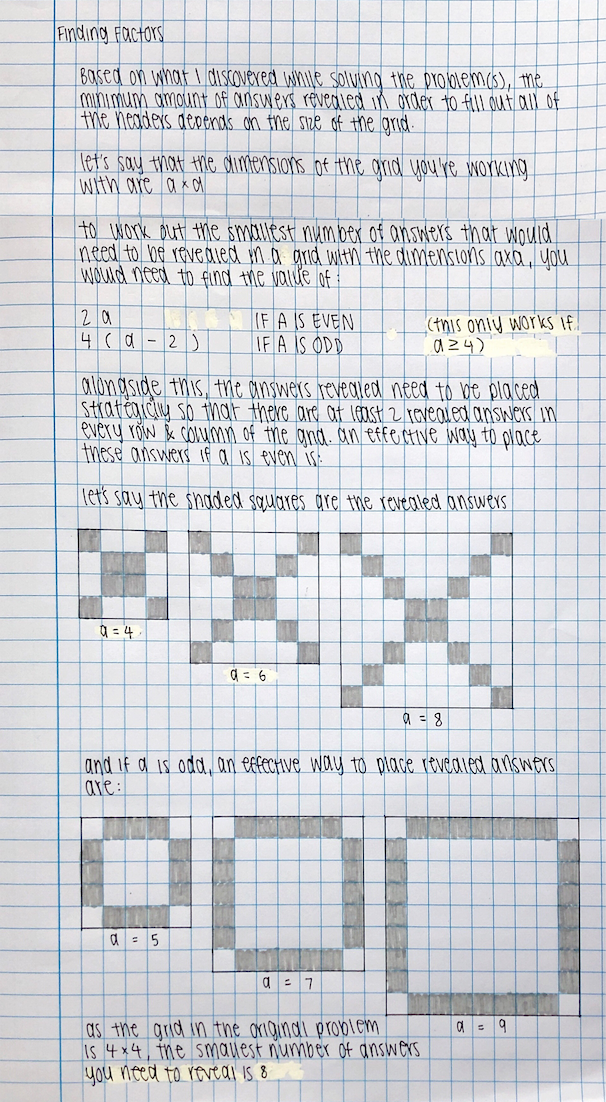 Finding Factors
Based on what I discovered while solving the problem(s), the
minimum amount of answers revealed in order to fill out all of
the headers depends on the size of the grid.
let's say that the dimensions of the grid you're working
with are a×a
to work out the smallest number of answers that would
need to be revealed in a grid with the dimensions axa, you
would need to find the value of:
2a IF A IS EVEN (this only works if
4(a-2) IF A IS ODD a≥4)
alongside this, the answers revealed need to be placed
strategically so that there are at least 2 revealed answers in
every row & column of the grid. an effective way to place
these answers if a is even is:
let's say the shaded squares are the revealed answers
a = 4
a = 6
a = 8
and if a is odd, an effective way to place revealed answers
are:
a = 5
a = 7
a = 9
as the grid in the original problem
is 4×4, the smallest number of answers
you need to reveal is 8